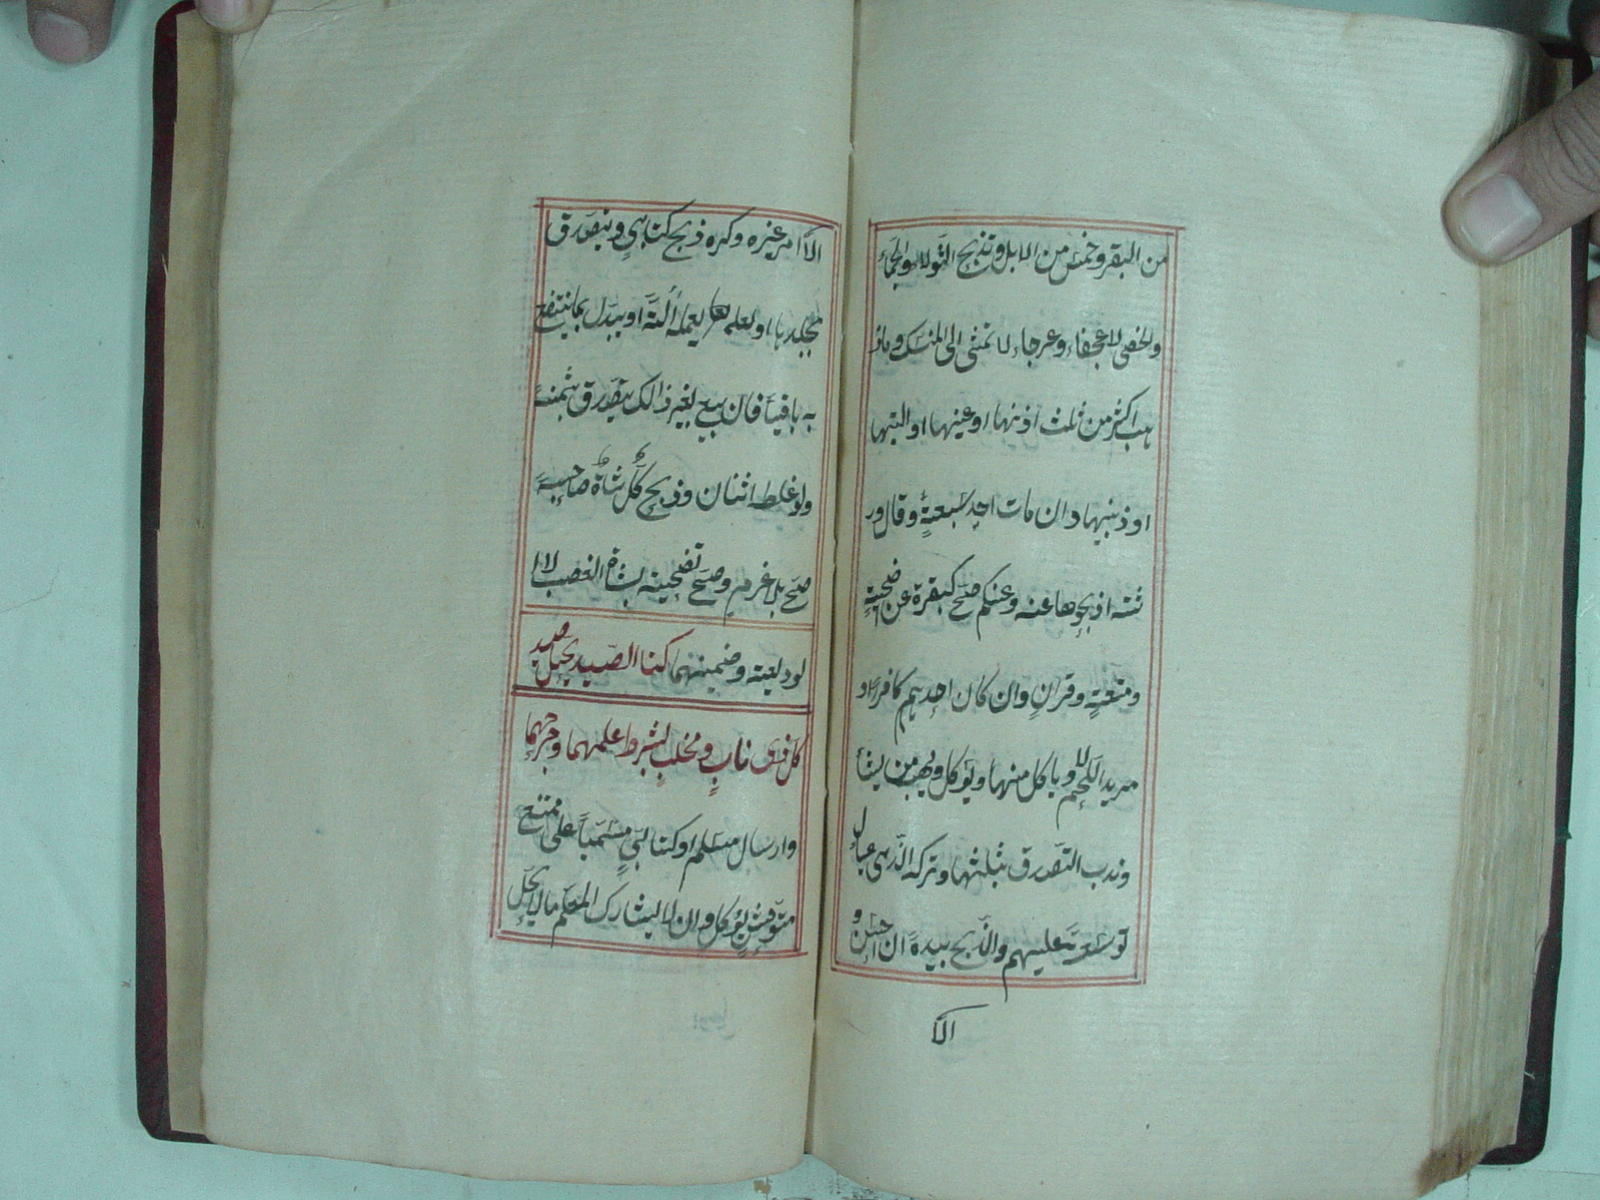 من البقر وخمس من الابل وتذبح الثولاء والجماء
والخصي لا عجفاء وعرجاء لا تمشي الى المنسك وما ذ
هب اكثر من ثلث اذنها او عينها او اليتها
او ذنبها وان مات احد سبعة وقال ور
ثته اذبحوها عنه وعنكم صح كبقرة عن اضحية
ومتعة وقران وان كان احدهم كافرا او
مريد اللحم لا وياكل منها ويؤكل ويهب من يشأ
وندب التصدق بثلثها وتركه لذي عيال
توسعة عليهم والذبح بيده ان احسن و
الا
الا امر غيره وكره ذبح كتابي ويتصدق
بجلدها او يعمله آلة او يبدل بما ينتفع
به باقيا فان بيع لغير ذالك يتصدق بثمنه
ولو غلط اثنان وذبح كل شاة صاحبه
صح بلا غرم وصح تضحيته بشاة الغصب لا
لوديعة وضمنهما كتاب الصيد يحل صيد
كل ذي ناب ومخلب بشرط علمهما وجرحهما
وارسال مسلم او كتابي مسميا على ممتنع
متوحش يؤكل وان لا يشارك المعلم ما لا يحل